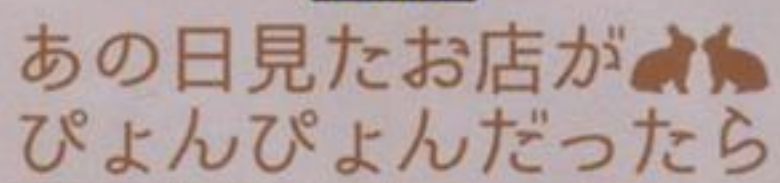 あの日見たお店が
ぴょんぴょんだったら